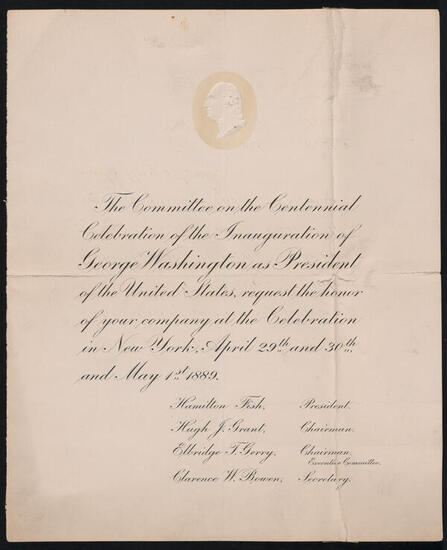 The Committee on the Centennial
Celebration of the Inauguration of
George Washington as President
of the United States, request the honor
of your company at the Celebration
in New York, April 29th and 30th,
and May 1st 1889.
Hamilton Fish, President.
Hugh J. Grant, Chairman.
Elbridge T. Gerry, Chairman,
Executive Committee.
Clarence W. Bowen, Secretary.